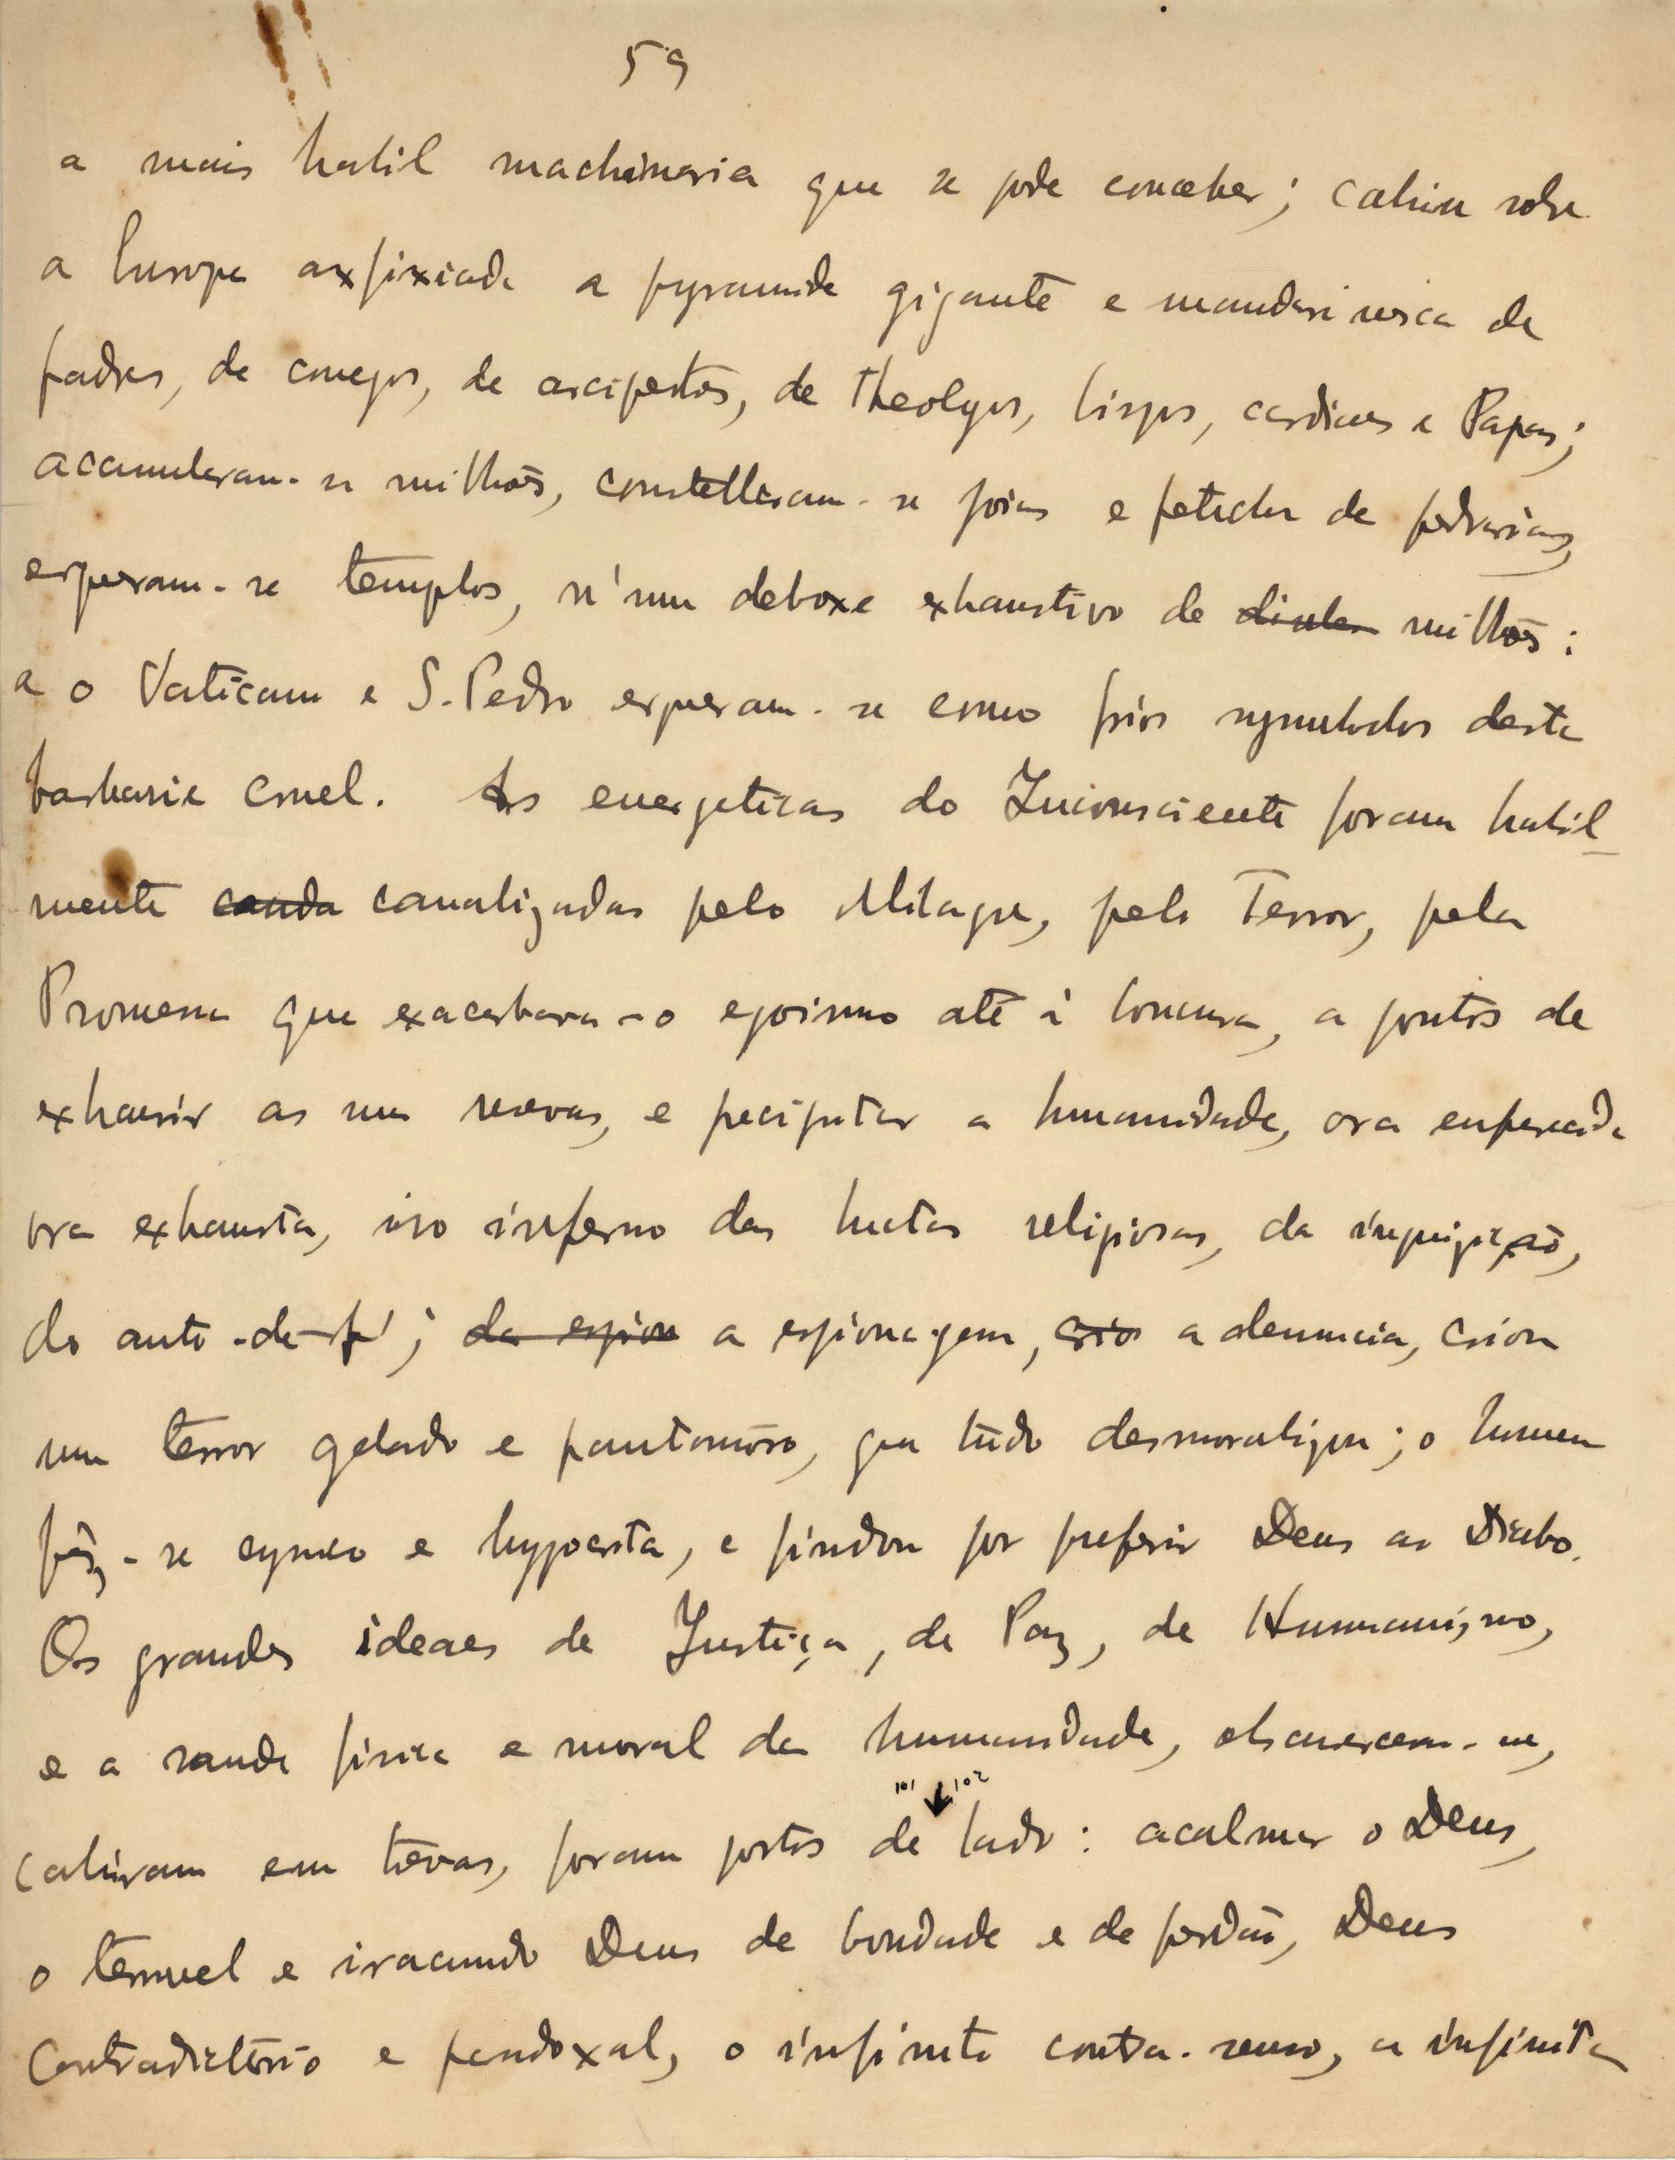 59
a mais habil machinaria que se pode conceber; cahiu sobre
a Europa axfixiada a pyramide gigante e mandarinesca de
padres, de conegos, de arciprestes, de theologos, bispos, cardiaes e Papas;
accumularam-se milhões, constellaram-se joias e fetiches de pedrarias,
ergueram-se templos, n'um deboxe exhaustivo de milhões:
a o Vaticano e S. Pedro ergueram-se como frios symbolos desta
barbarie cruel. As energeticas do Inconsciente foram habil-
mente canalizadas pelo Milagre, pelo Terror, pela
Promessa que exacerbara-o egoismo até á loucura, a pontos de
exhaurir as suas reservas, e precipitar a humanidade, ora
ora exhausta, no inferno das luctas religiosas, da inquizição,
do auto-de-fé; a espionagem, a denuncia, criou
um terror gelado e pantanôso, que tudo desmoralizou; o homem
fêz-se cynico e hypocrita, e findou por preferir Deus ao Diabo.
Os grandes ideaes de Justiça, de Paz, de Humanismo,
e a saude fisica e moral da humanidade, obscureceram-se,
101 102
cahiram em trevas, foram postos de lado: acalmar o Deus,
o terrivel e iracundo Deus de bondade e de perdão, Deus
contradictorio e paradoxal, o infinito contra-senso, a infinita